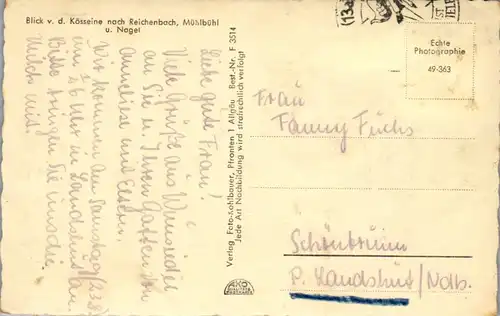 Blick v. d. Kösseine nach Reichenbach, Mühlbühl
u. Nagel
Liebe gute Frau!
Viele Grüße aus Wunsiedel
an Sie u. Ihren Gatten von
Anneliese und Eltern.
kommen am Samstag
um 26 Uhr in Landshut an.
Bitte bringen Sie uns die
Milch mit.
Verlag Foto-Kohlbauer, Pfronten 1 Allgäu Best.-Nr. F 3514
Jede Art Nachbildung wird strafrechtlich verfolgt
Echte
Photographie
49-363
Frau
Fanny Fuchs
Schönbrunn
P. Landshut/Ndb.